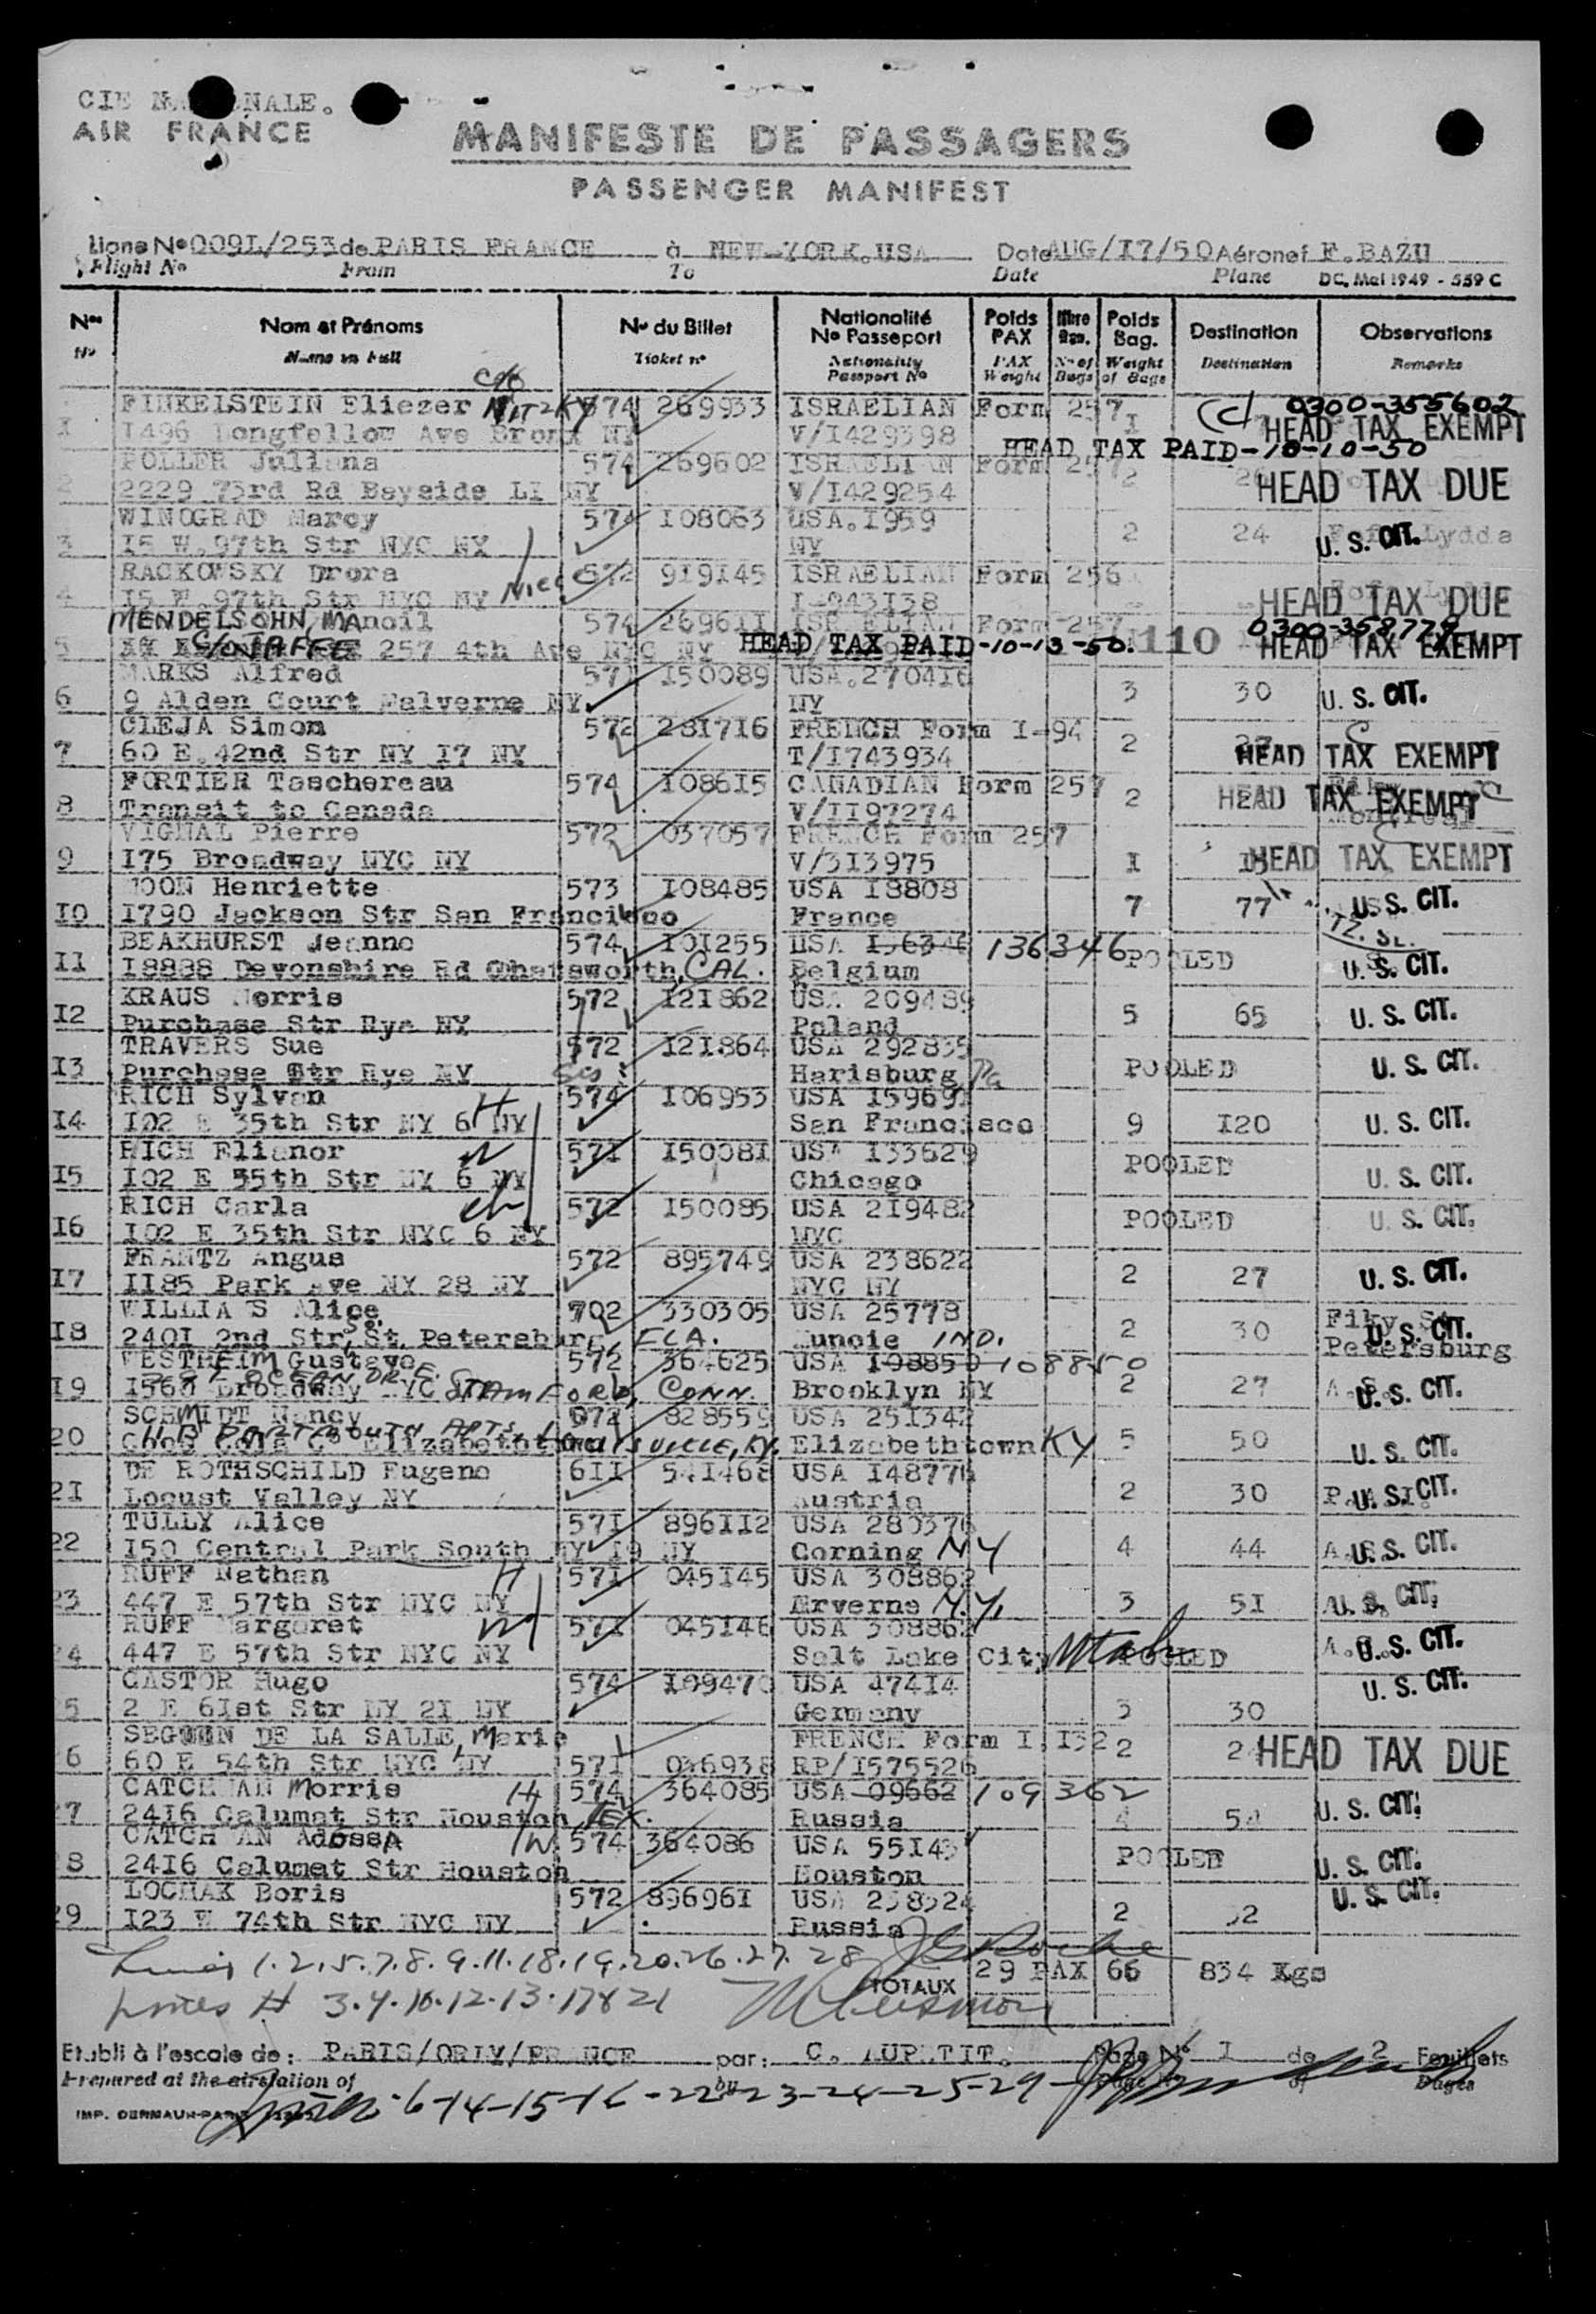 CIE NALE.
AIR FRANCE
MANIFESTE DE PASSAGERS
PASSENGER MANIFEST
Ligne No 009L/253 de PARIS FRANCE à NEW-YORK.USA Date AUG/17/50 Aéronef F.BAZU
Flight No From To Date Plane DC. Mai 1949 - 559 C
Nos Nom et Prénoms No du Billet Nationalité No Passeport Poids PAX Nbre Bag. Poids Bag. Destination Observations
No Name in Full Ticket no Nationality Passport No PAX Weight No of Bags Weight of Bags Destination Remarks
c/o
FINKELSTEIN Eliezer NITZKY 574 269933 ISRAELIAN Form 257 0300-355602
1 1496 Longfellow Ave Bronx NY V/1429398 1 HEAD TAX EXEMPT
HEAD TAX PAID-10-10-50
POLLER Juliana 574 269602 ISRAELIAN Form 257
2 2229 73rd Rd Bayside LI NY V/1429254 2 HEAD TAX DUE
WINOGRAD Marcy 574 108063 USA.1959
3 15 W.97th Str NYC NY NY 2 24 Lydda U. S. CIT.
RACKOWSKY Drora 572 919145 ISRAELIAN Form 256
4 15 W.97th Str NYC NY Niece I-043138 HEAD TAX DUE
MENDELSOHN, MAnoil 574 269611 ISRAELIAN Form 257 0300-358779
5 C/O JAFFE 257 4th Ave NYC NY HEAD TAX PAID-10-13-50. 110 HEAD TAX EXEMPT
MARKS Alfred 571 150089 USA.270416
6 9 Alden Court Malverne NY NY 3 30 U. S. CIT.
CLEJA Simon 572 281716 FRENCH Form I-94 C
7 60 E.42nd Str NY 17 NY T/1743934 2 HEAD TAX EXEMPT
FORTIER Taschereau 574 108615 CANADIAN Form 257
8 Transit to Canada V/1197274 2 HEAD TAX EXEMPT Montreal
VIGNAL Pierre 572 037057 FRENCH Form 257 C
9 175 Broadway NYC NY V/313975 1 HEAD TAX EXEMPT
MOON Henriette 573 108485 USA 18808
10 1790 Jackson Str San Francisco France 7 77 U. S. CIT.
BEAKHURST Jeanne 574 101255 USA 136346 136346
11 18888 Devonshire Rd Chatsworth, CAL. Belgium POOLED U. S. CIT.
KRAUS Norris 572 121862 USA 209489
12 Purchase Str Rye NY Poland 5 65 U. S. CIT.
TRAVERS Sue 572 121864 USA 292835
13 Purchase Str Rye NY Harisburg Pa POOLED U. S. CIT.
RICH Sylvan H 574 106953 USA 159691
14 102 E 35th Str NY 6 NY San Francisco 9 120 U. S. CIT.
RICH Elianor W 571 150081 USA 133629
15 102 E 35th Str NY 6 NY Chicago POOLED U. S. CIT.
RICH Carla ch 572 150085 USA 219482
16 102 E 35th Str NYC 6 NY NYC POOLED U. S. CIT.
FRANTZ Angus 572 895749 USA 238622
17 1185 Park Ave NY 28 NY NYC NY 2 27 U. S. CIT.
WILLIAMS Alice 702 330305 USA 25778
18 2401 2nd Str, So. St. Petersburg, FLA. Muncie IND. 2 30 Petersburg U. S. CIT.
WESTHEIM Gustave 572 364625 USA 108850 108850
19 1560 Broadway NYC OCEAN DR. E. STAMFORD, CONN. Brooklyn NY 2 27 U. S. CIT.
SCHMIDT Nancy 072 828559 USA 251342
20 Coca Cola Co Elizabethtown DARTMOUTH APTS. LOUISVILLE, KY. Elizabethtown KY 5 50 U. S. CIT.
DE ROTHSCHILD Eugene 611 541468 USA 148776
21 Locust Valley NY Austria 2 30 U. S. CIT.
TULLY Alice 571 896112 USA 280376
22 150 Central Park South NY 19 NY Corning NY 4 44 U. S. CIT.
RUFF Nathan H 571 045145 USA 308862
23 447 E 57th Str NYC NY Arverne N.Y. 3 51 U. S. CIT.
RUFF Margaret W 571 045146 USA 308862
24 447 E 57th Str NYC NY Salt Lake City Utah POOLED U. S. CIT.
CASTOR Hugo 574 109470 USA 47414
25 2 E 61st Str NY 21 NY Germany 3 30 U. S. CIT.
SEGOIN DE LA SALLE, Marie FRENCH Form I.132
26 60 E 54th Str NYC NY 571 036938 RP/1575526 2 HEAD TAX DUE
CATCHMAN Morris H 574 364085 USA 09662 109362
27 2416 Calumat Str Houston, TEX. Russia 4 54 U. S. CIT.
CATCHMAN AdessA W 574 364086 USA 55143
28 2416 Calumat Str Houston Houston POOLED U. S. CIT.
LOCHAK Boris 572 896961 USA 258524
29 123 W 74th Str NYC NY Russia 2 32 U. S. CIT.
1.2.5.7.8.9.11.18.19.20.26.27.28
TOTAUX 29 PAX 66 834 Kgs
3.4.10.12.13.17&21
Etabli à l'escale de: PARIS/ORLY/FRANCE par: C. AUPETIT. Page No 1 de 2 Feuillets
Prepared at the airstation of by of Pages
6-14-15-16-22-23-24-25-29
IMP. DERMAUX-PARIS